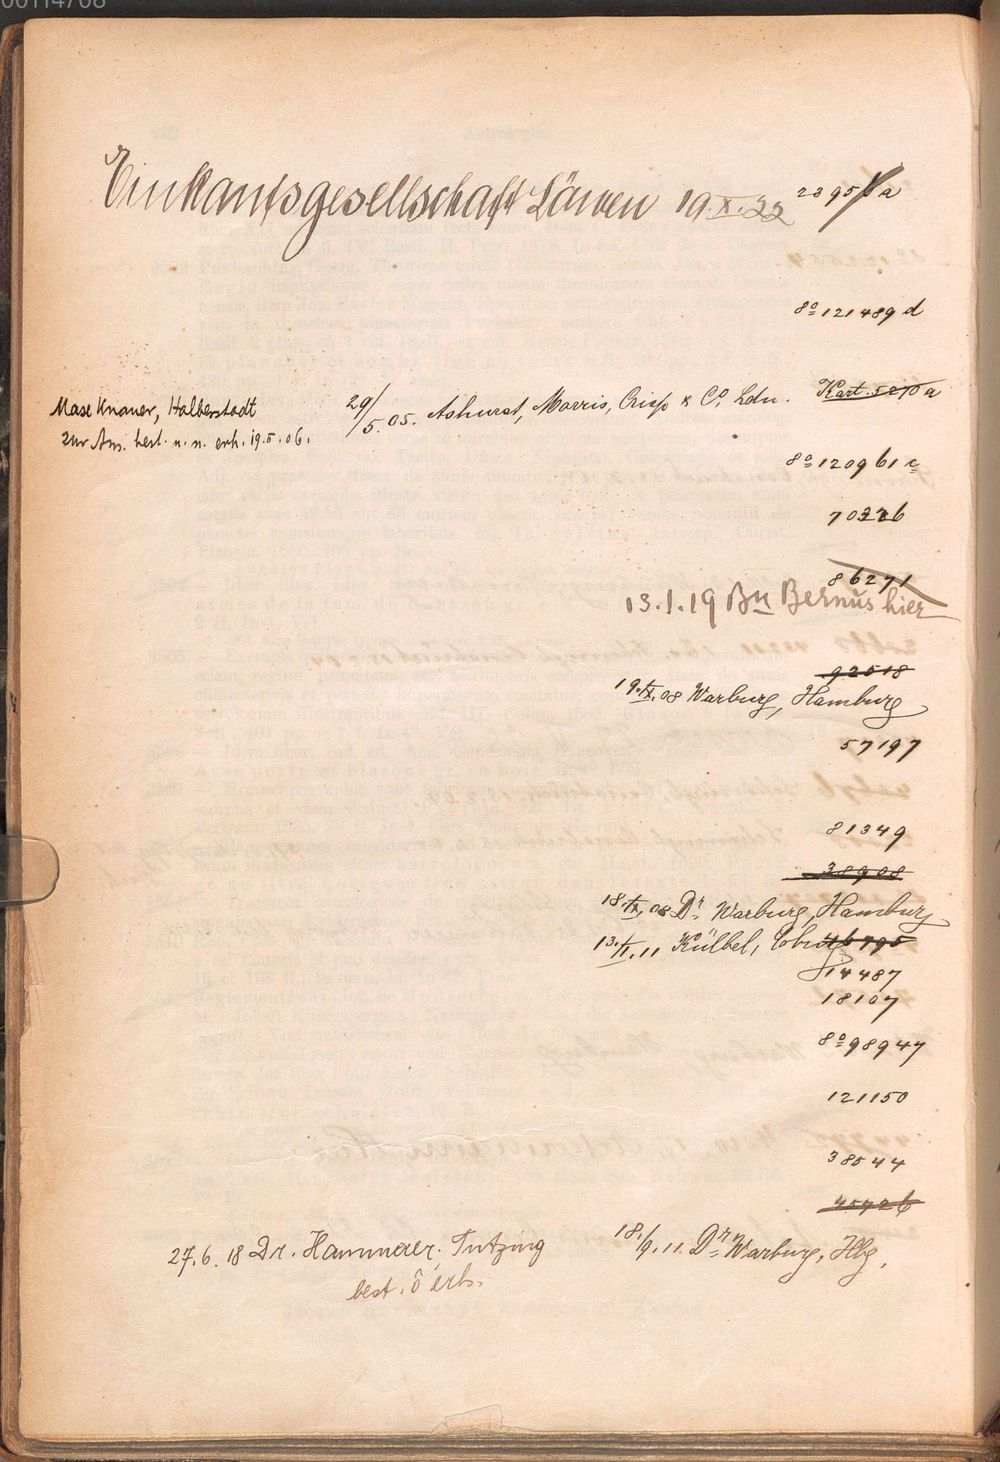 00114708
Einkaufsgesellschaft Löwen 19.X.22 23956a
8º 121489 d
Max Knauer, Halberstadt
zur Ans. best. u. n. erh. 19.5.06.
29/5.05. Ashurst, Morris, Crisp & Cº, Ldn. Kart. 5270a
8º 120961 c
70326
86271
13.1.19 Bn Bernus hier
92518
19.IX.08 Warburg, Hamburg
57197
81349
38908
18.IX.08 Dr. Warburg, Hamburg
13./1.11 Külbel, 46795
14487
18107
8º 98947
121150
38544
45726
27.6.18 Dr. Hammerer, Tutzing
18./9.11. Dr. Warburg, Hbg.
best. ô erh.